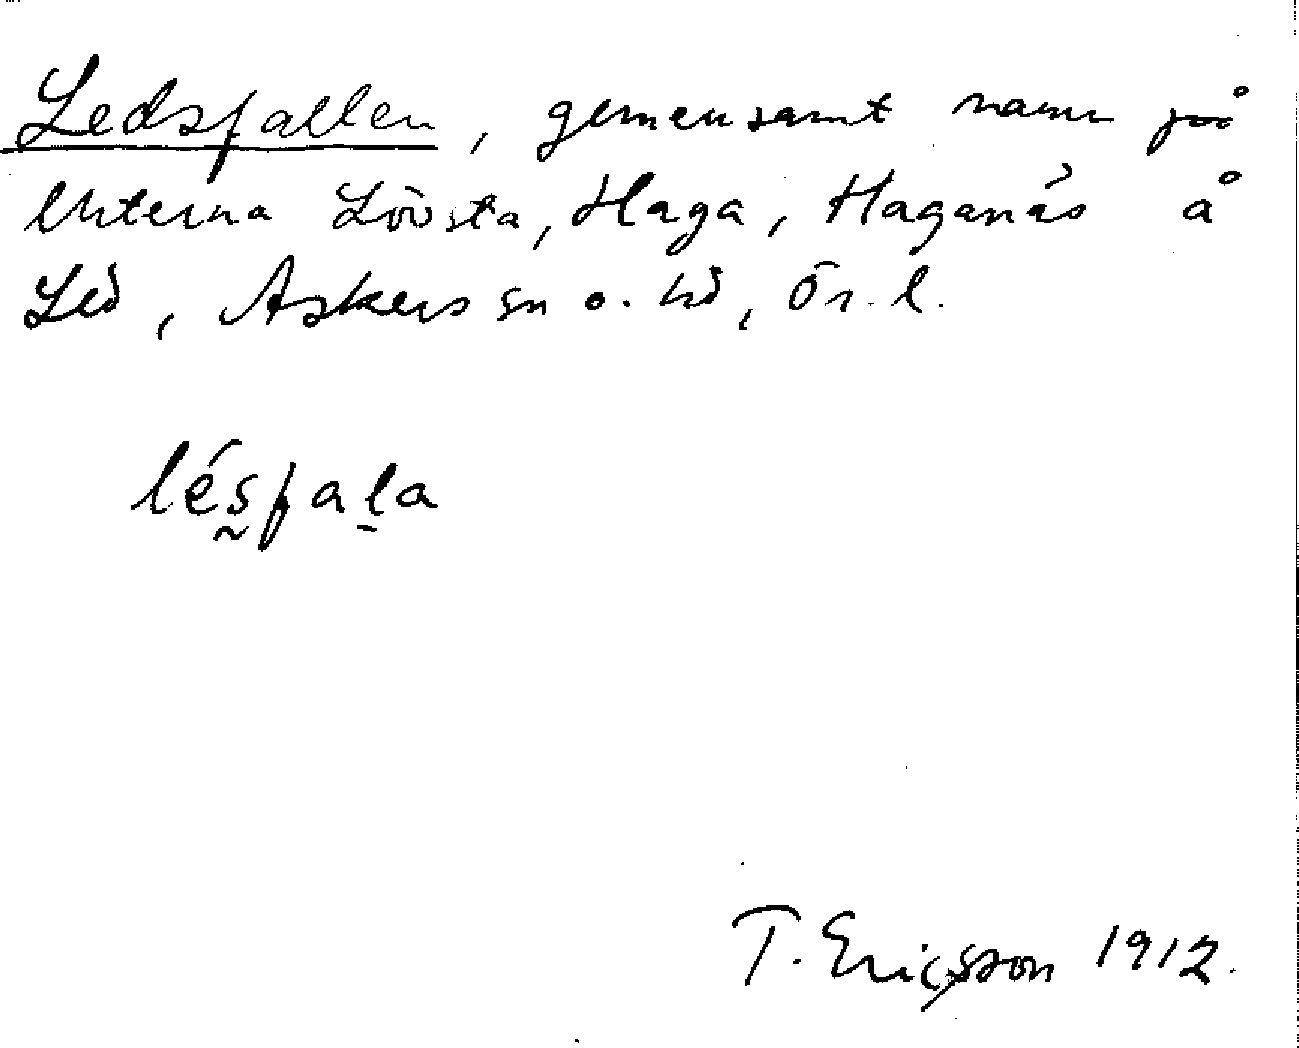 Ledsfallen, gemensamt namn på
lhterna Lövsta, Haga, Haganäs å
Led, Askers sn o. hd, Ör. l.
lésfala
T. Ericsson 1912.